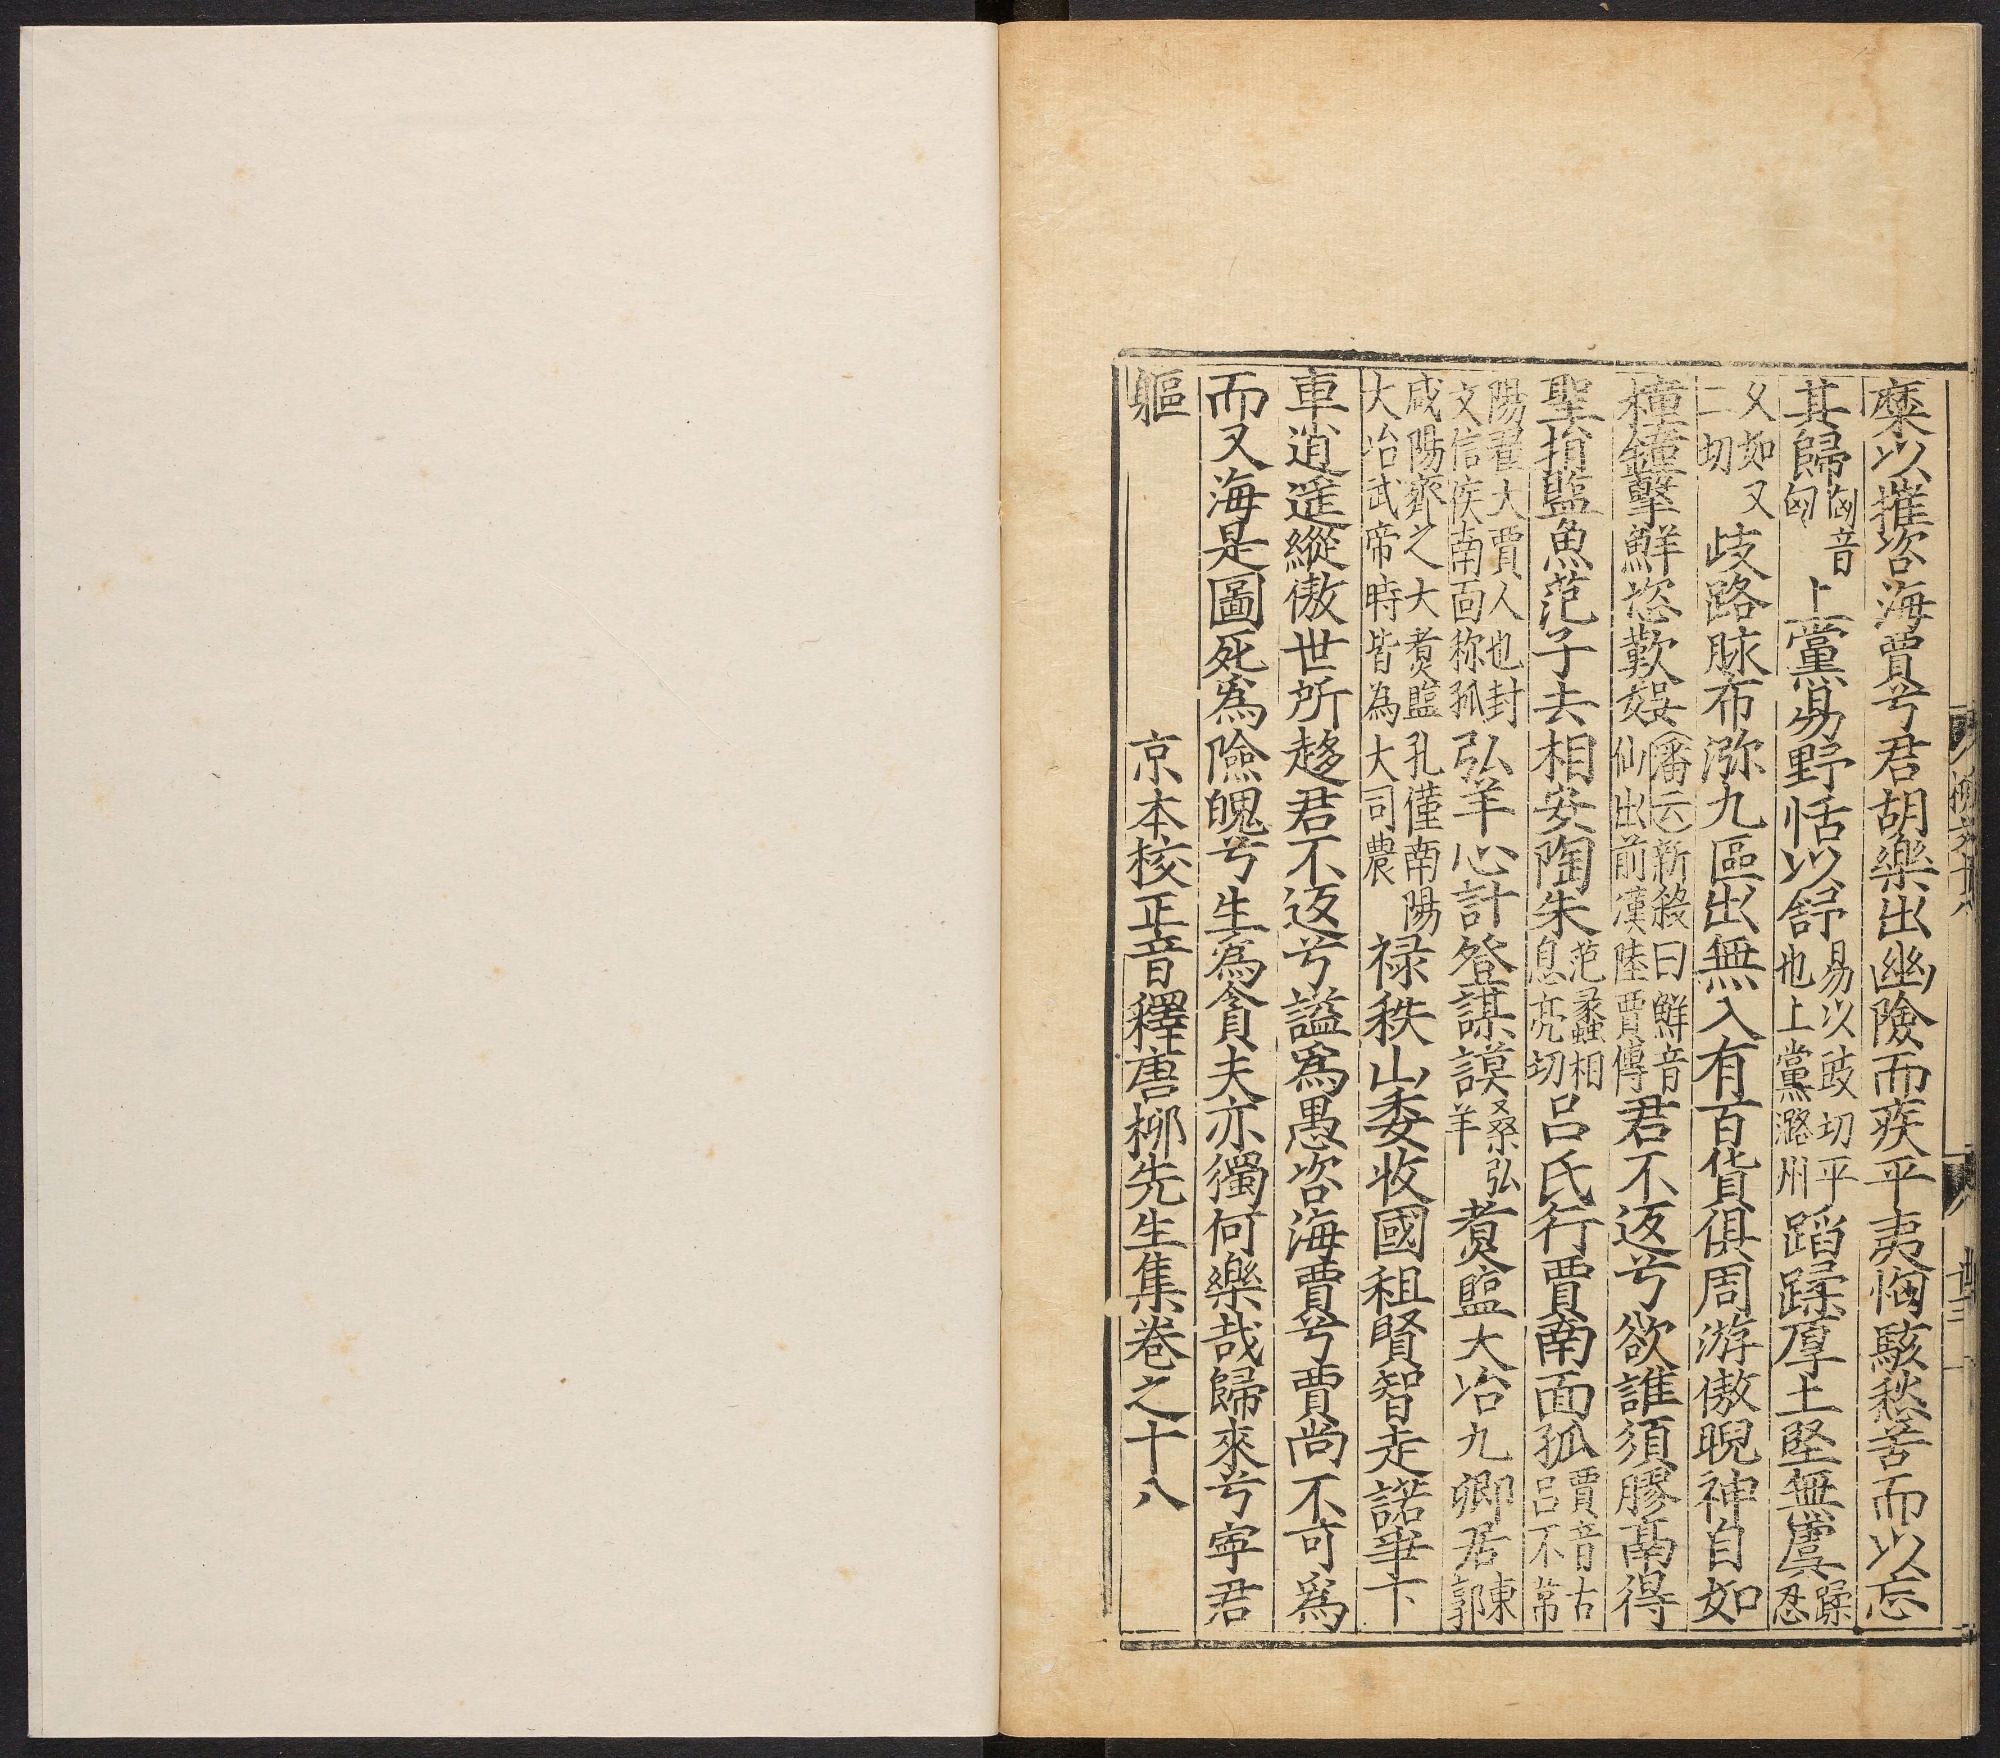 糜以摧咨海賈兮君胡樂出幽險而疾平夷恟駭愁苦而以忘
其歸恟音匈上黨易野恬以舒易以豉切平也上黨潞州蹈蹂厚土堅無虞蹂忍
又如又二切歧路脉布瀰九區出無入有百貨俱周游傲睨神自如
橦鐘擊鮮恣歡娛(潘云)新殺曰鮮音仙出前漢陸賈傳君不返兮欲誰須膠鬲得
聖捐鹽魚范子去相安陶朱范蠡相息亮切呂氏行賈南面孤賈音古呂不常
陽翟大賈人也封文信侯南面称孤弘羊心計登謀謨桑弘羊煑鹽大冶九卿居東郭
咸陽齊之大煑鹽孔僅南陽大冶武帝時皆為大司農禄秩山委收國租賢智走諾爭下
車逍遥縱傲世所趍君不返兮謚爲愚咨海賈兮賈尚不可爲
而又海是圖死爲險魄兮生爲貪夫亦獨何樂哉歸來兮寧君
軀
京本校正音釋唐柳先生集卷之十八